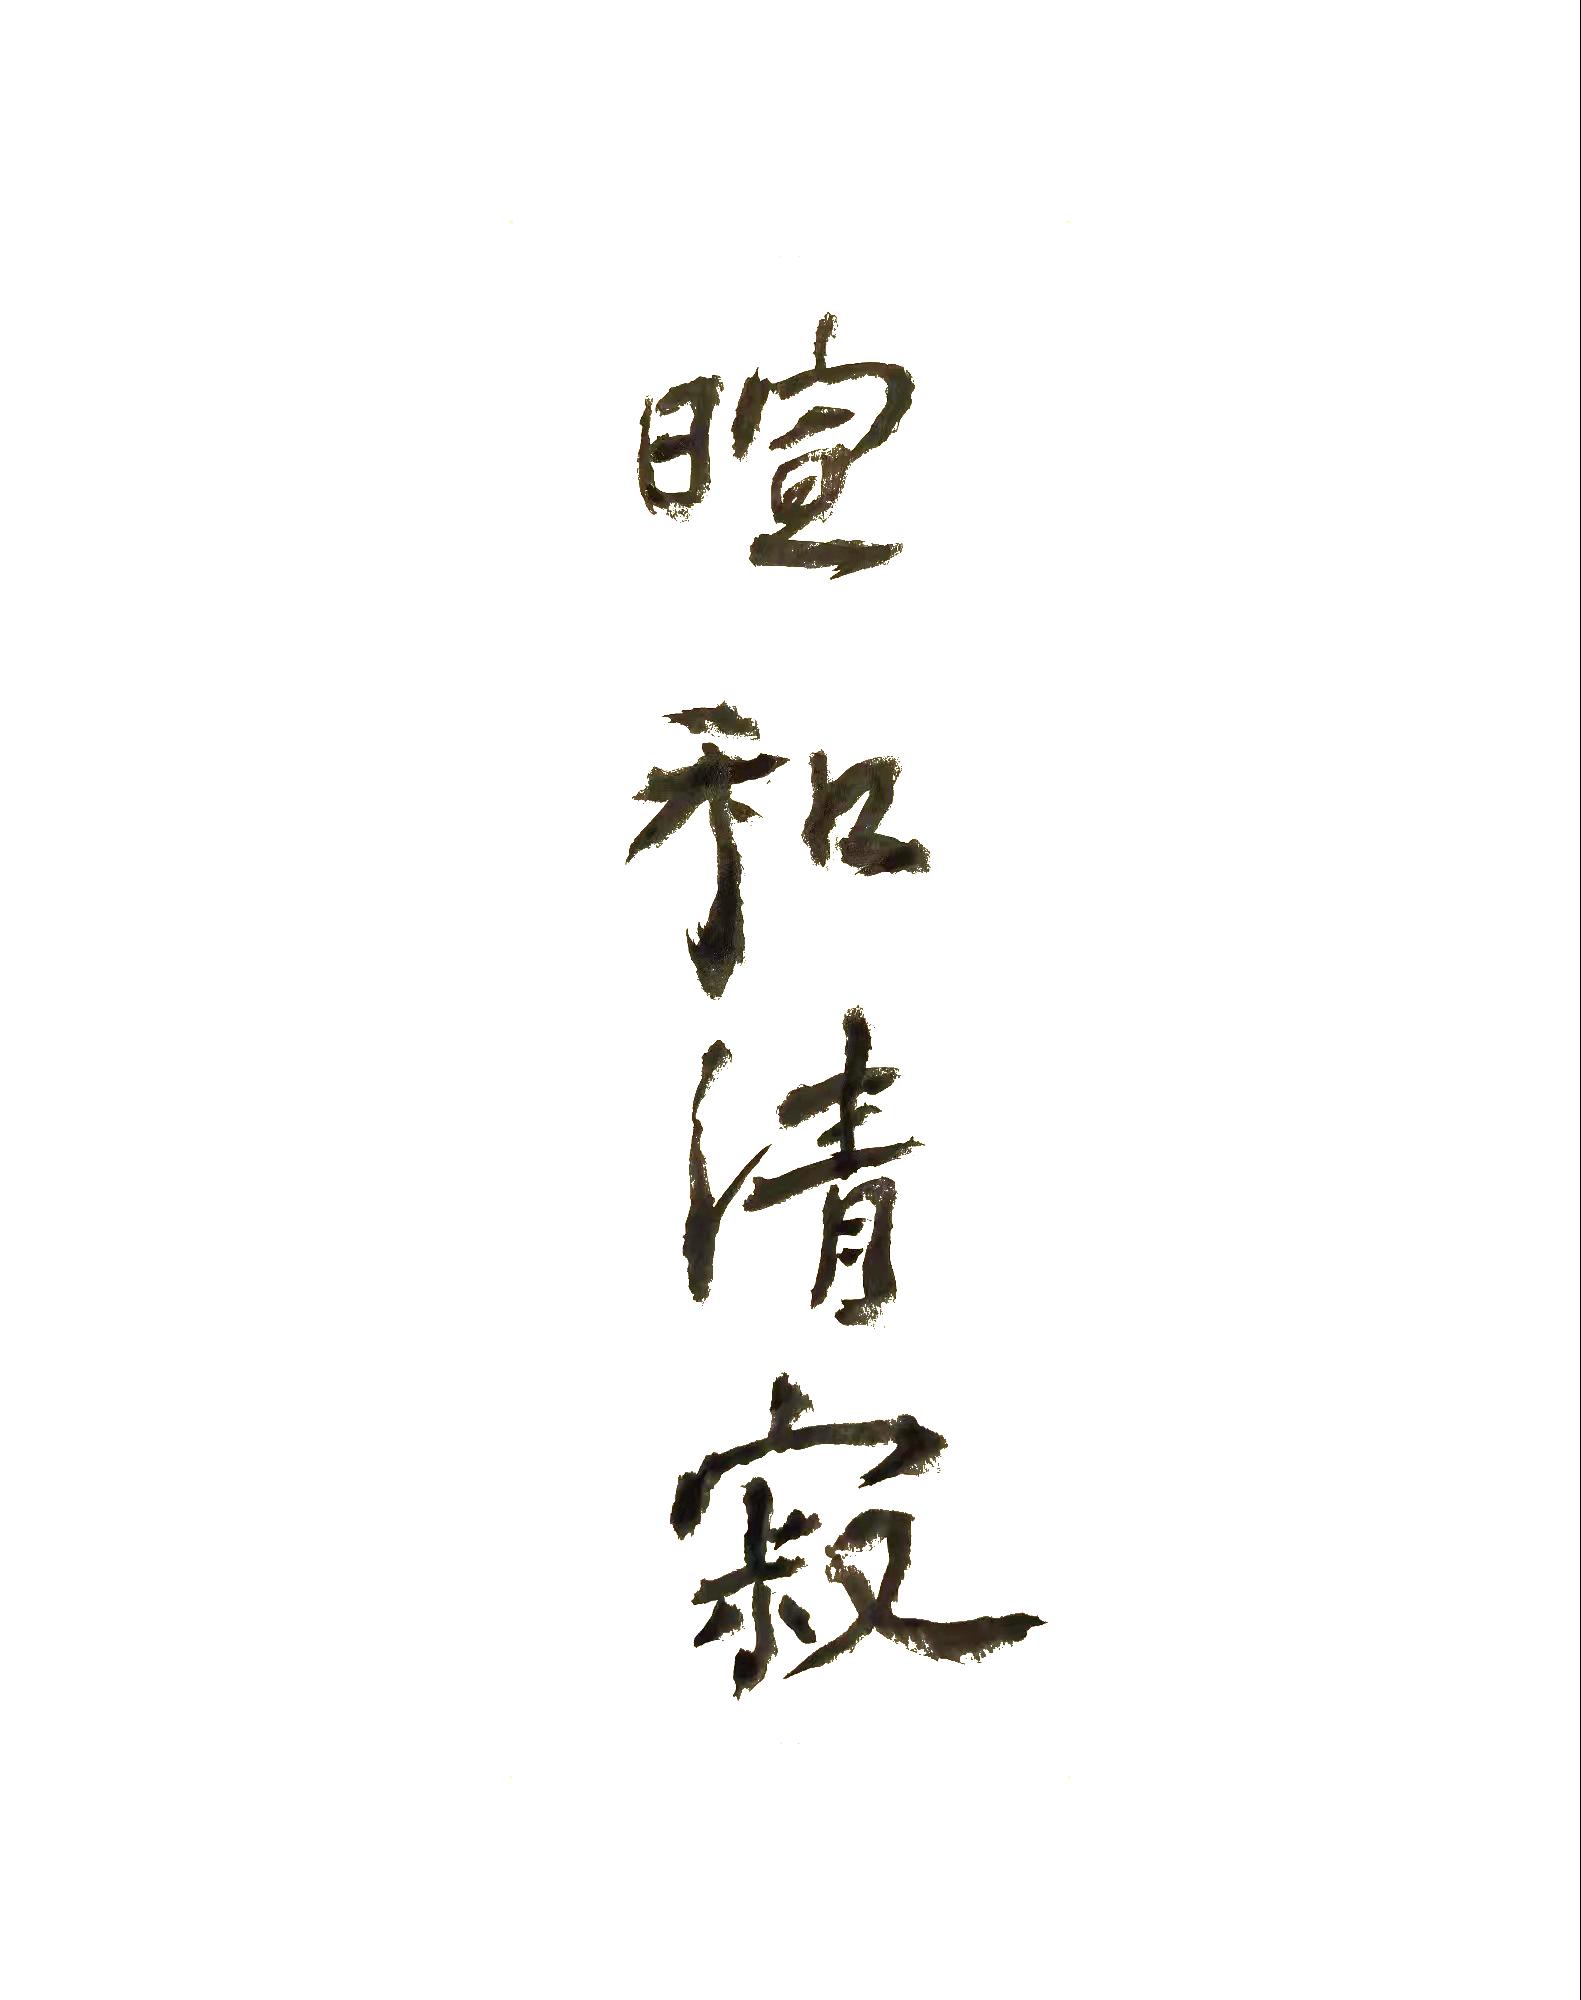 暄和清寂